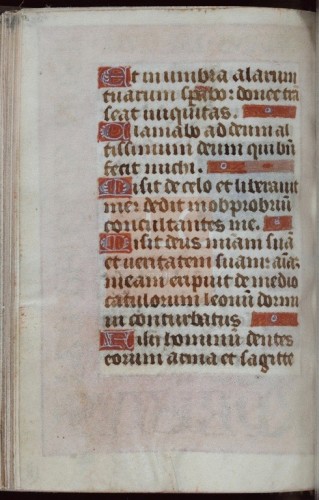 Et in umbra alarum
tuarum sp̄abo: donec trā
seat iniquitas.
Clamabo ad deum al
tissimum deum qui bn̄
fecit michi.
Misit de celo et liberauit
me: dedit in obprobriū
conculcantes me.
Misit deus miām suā
et ueritatem suam: aīaꝫ
meam eripuit de medio
catulorum leonū dormi
ui conturbatus
Filii hominū dentes
eorum arma et sagitte